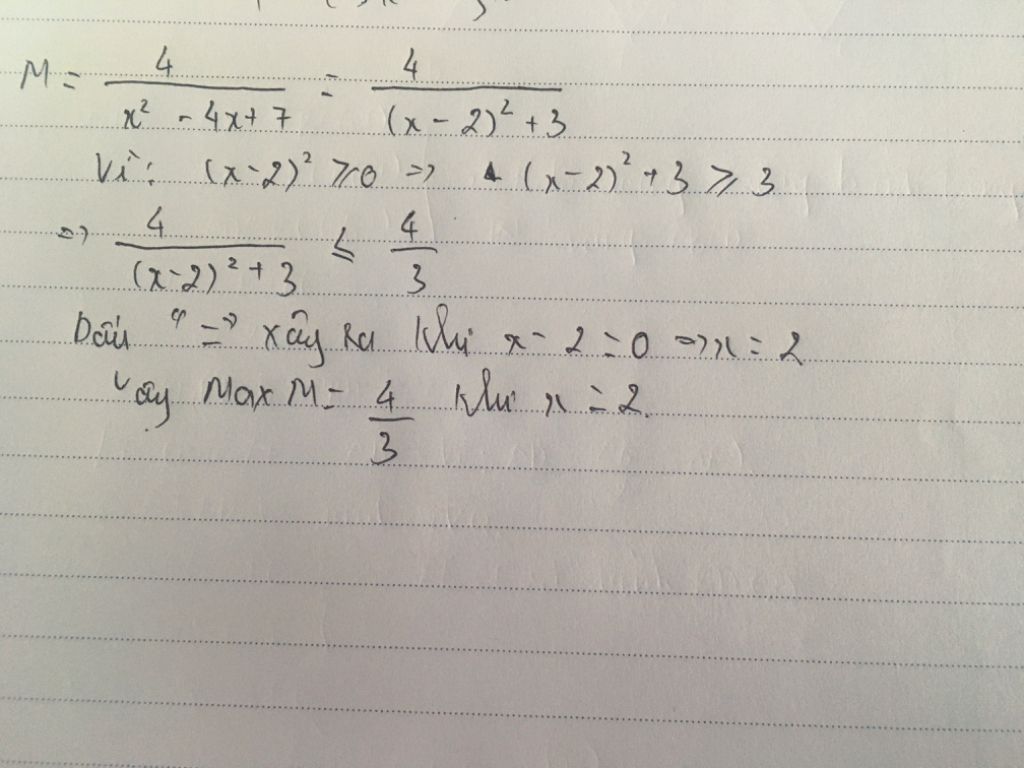 M = 4/(x² - 4x + 7) = 4/((x - 2)² + 3)
Vì: (x-2)² ≥ 0 => (x-2)² + 3 ≥ 3
=> 4/((x-2)² + 3) ≤ 4/3
Dấu "=" xảy ra khi x - 2 = 0 => x = 2
Vậy Max M = 4/3 khi x = 2.